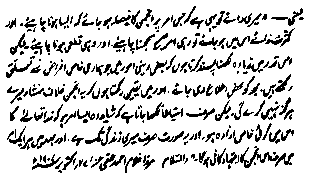 میری رائے تو یہی ہے کہ جس امر پر انجمن کا فیصلہ ہو جائے کہ ایسا ہونا چاہیئے اور
کثرت رائے اس میں ہو جائے تو وہی امر صحیح سمجھنا چاہیئے۔ اور وہی قطعی ہونا چاہیئے۔ لیکن
اس قدر میں زیادہ لکھنا پسند کرتا ہوں کہ بعض دینی امور میں جو ہماری خاص اغراض سے تعلق
رکھتے ہیں۔ مجھ کو محض اطلاع دی جائے۔ اور میں یقین رکھتا ہوں کہ یہ انجمن خلاف منشاء میرے
ہرگز نہیں کرے گی۔ لیکن صرف احتیاطاً لکھا جاتا ہے کہ شاید وہ ایسا امر ہو کہ خدا تعالیٰ کا
اس میں کوئی خاص ارادہ ہو۔ اور یہ صورت صرف میری زندگی تک ہے۔ اور بعد میں ہر ایک امر
میں صرف اس انجمن کا اجتہاد کافی ہوگا۔ والسلام مرزا غلام احمد عفی عنہ ۲۷ اکتوبر ۱۹۰۷ء